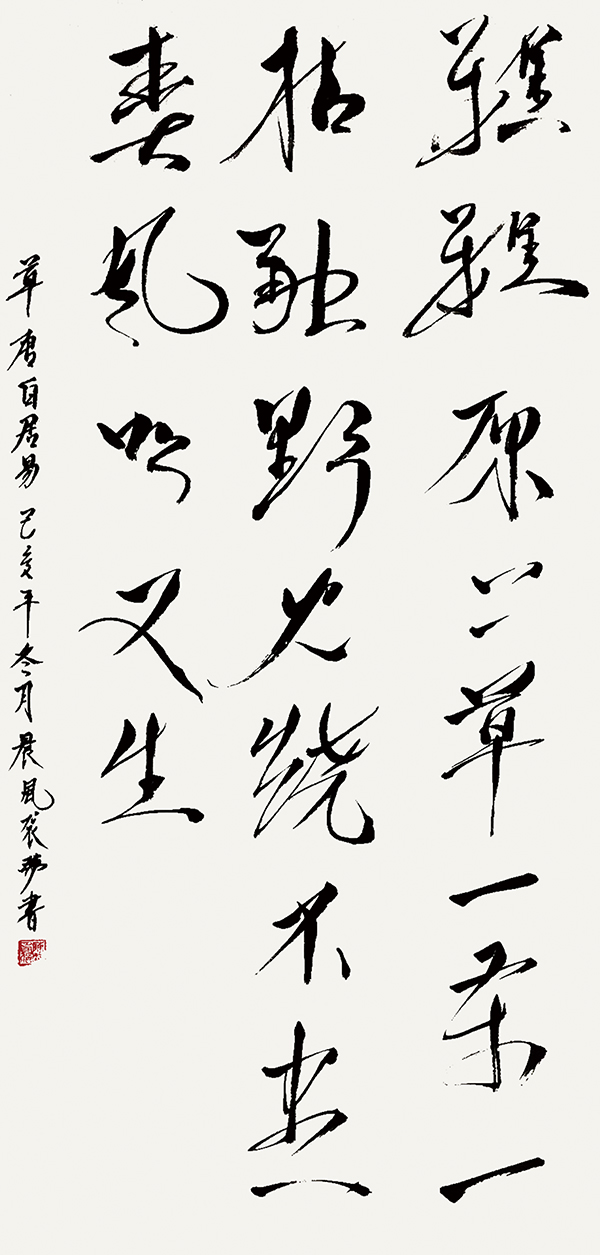 離離原上草一歲一
枯榮野火燒不盡
春風吹又生
草 唐白居易 己亥年冬月晨風書